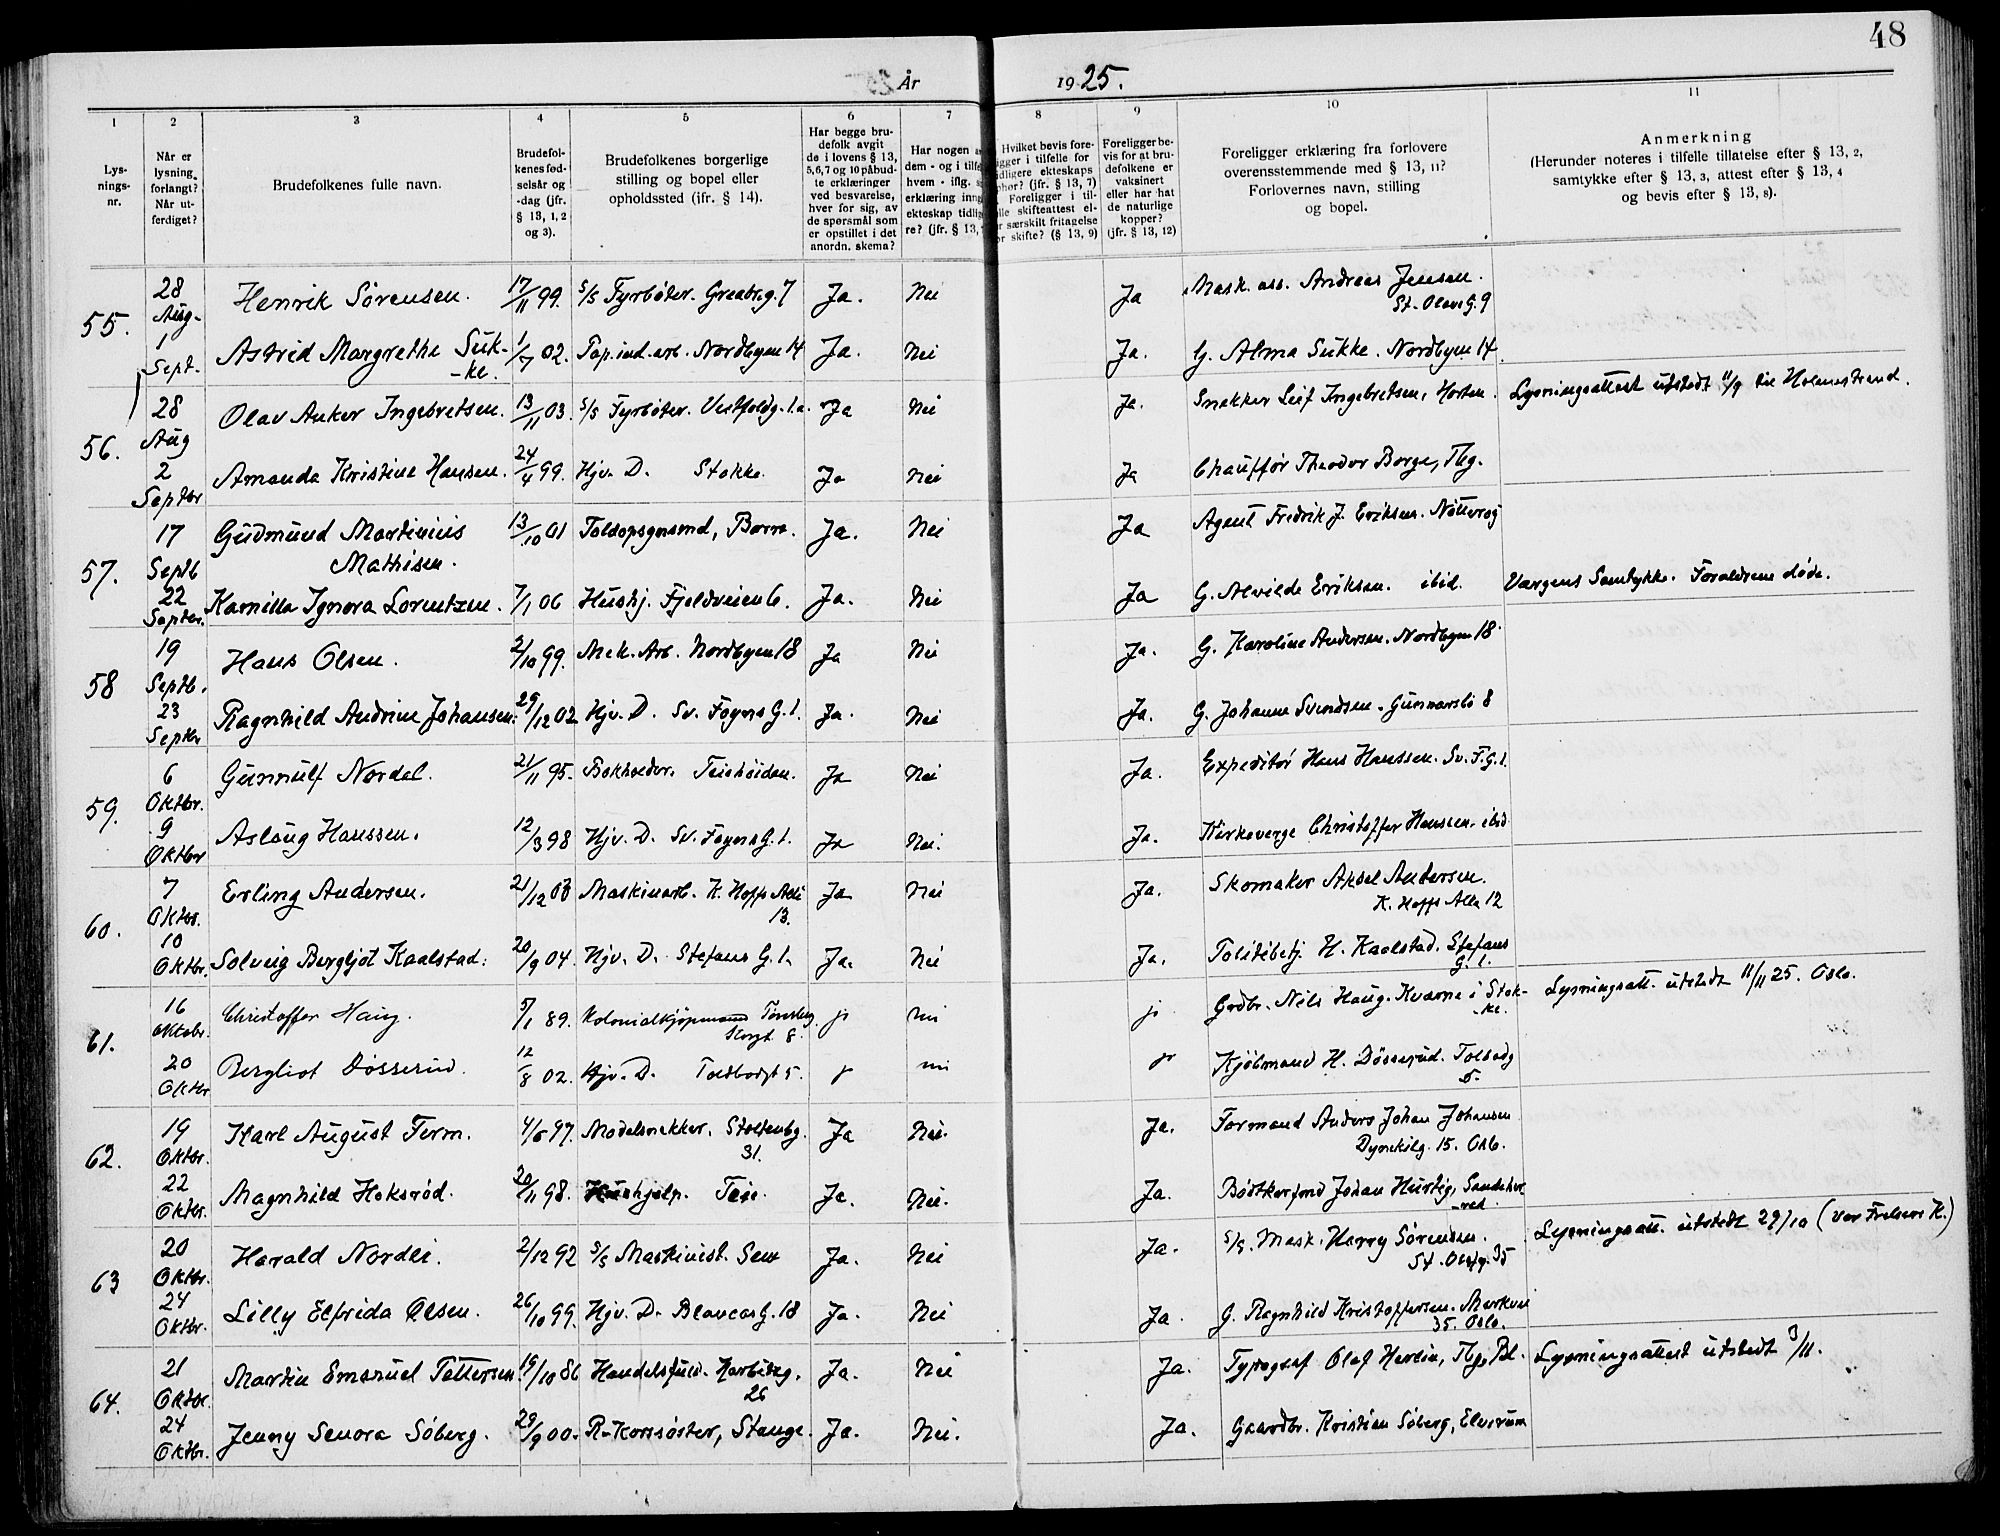 48
År 1925.
1
2
3
4
5
6
7
8
9
10
11
Lys-
nings-
nr.
Når er
lysning
forlangt?
Når ut-
ferdiget?
Brudefolkenes fulle navn.
Brudefol-
kenes fød-
selsår og
-dag (jfr.
§ 13, 1, 2
og 3).
Brudefolkenes borgerlige
stilling og bopel eller
opholdssted (jfr. § 14).
Har begge bru-
defolk avgit
de i lovens § 13,
5,6,7 og 10 påbud-
te erklæringer
ved besvarelse,
hver for sig, av
de spørsmål som
er opstillet i det
anordn. skema?
Har nogen
dem - og i tilfe
hvem - iflg.
erklæring inng
ekteskap tidlig
re? (jfr. § 13,
Hvilket bevis fore-
igger i tilfelle for
idligere ekteskaps
phør? (jfr. § 13, 7)
Foreligger i til-
lle skifteattest el-
r særskilt fritagelse
or skifte? (§ 13, 9)
Foreligger be-
vis for at bru-
defolkene er
vaksinert
eller har hat
de naturlige
kopper?
(jfr. § 13, 12)
Foreligger erklæring fra forlovere
overensstemmende med § 13, 11?
Forlovernes navn, stilling
og bopel.
Anmerkning
(Herunder noteres i tilfelle tillatelse efter § 13, 2,
samtykke efter § 13, 3, attest efter § 13, 4
og bevis efter § 13, 8).
55. 28 Aug- Henrik Sørensen. 17/11 99. S/S Fyrbøter. Ja. Nei Ja Mask. ass. Andreas Jensen.
St. Olavs G. 9
1 Sept- Astrid Margrethe Suk- 1/7 02. Pap. ind. arb. Nordbyen 14 Ja. Nei Ja. G. Alma Sukke. Nordbyen 14.
-ke.
56. 28 Aug Olav Anker Ingebretsen. 13/11 03. S/S Fyrbøter. Vestfoldg. 1.a. Ja Nei Ja. Snekker Leif Ingebretsen, Horten. Lysningsattest utstedt 11/9 til Holmestrand.
2 Septbr Amanda Kristine Hansen. 24/4 99. Hjv. D. Stokke. Ja Nei Ja Chauffør Theodor Borge, Tbg.
57. 17 Septb Gudmund Martinius 13/10 01 Toldopsynsmd, Borre. Ja. Nei Ja Agent Fredrik J. Eriksen. Nøtterøy
Mathisen.
22 Septbr. Kamilla Ignora Lorentzen. 7/1 06 Hushj. Fjeldveien 6. Ja. Nei Ja G. Alvilde Eriksen. ibid. Værgens Samtykke. Forældrene døde.
58 19 Septb. Hans Olsen. 2/10 99. Mek. Arb. Nordbyen 18 Ja Nei Ja. G. Karoline Andersen. Nordbyen 18.
23 Septbr Ragnhild Andrine Johansen. 29/12 02 Hjv. D. Sv. Foyns G. 1. Ja. Nei Ja. G. Johanne Svendsen. Gunnarsbø 8
59. 6 Oktbr. Gunnulf Nordal. 21/11 95. Bokholder. Teiehøiden. Ja Nei Ja. Expeditør Hans Hanssen. Sv. F. G. 1.
9 Oktbr Aslaug Hanssen. 12/3 98 Hjv. D. Sv. Foyns G. 1. Ja Nei. Ja. Kirkeverge Christoffer Hanssen. ibid.
60. 7 Oktbr. Erling Andersen. 21/12 Maskinarb. K. Hopfs Alle Ja Nei Ja. Skomaker Aksel Andersen.
13.
K. Hopfs Alle 12
10 Oktbr. Solveig Bergljot Kaalstad. 20/9 04. Hjv. D. Stefans G. 1. Ja. Nei Ja. Politibetj. H. Kaalstad. Stefans
G. 1.
61. 16 Oktobr. Christoffer Haug. 5/1 89. Kolonialkjøpmand Tønsberg ja nei ja Grdbr. Nils Haug. Kværne i Stok- Lysningsatt. utstedt 11/11 25. Oslo.
Storgt 8.
-ke.
20 Oktbr Bergliot Døsserud. 12/8 02. Hjv. D. Toldbodgt 5. ja nei ja Kjøbmand H. Døsserud. Tolbodg
5.
62. 19 Oktbr. Karl August Ferm. 4/6 97. Modelsnekker. Stoltenbg. Ja Nei. Ja. Formand Anders Johan Johansen
31.
Dynekilg. 15. Oslo.
22 Oktbr. Magnhild Heksrød. 20/11 98. Hushjelp. Teie. Ja. Nei. Ja. Bødtkerfmd Johan Hurtig, Sandeher
-red
63 20 Oktbr. Harald Nordli. 2/12 92 S/S Maskinist. Sem Ja. Nei Ja. S/S. Mask. Harry Sørensen. Lysningsatt. utstedt 29/10 (Vor Frelsers K.)
St. Olafg. 35
24 Oktbr. Lilly Elfrida Olsen. 26/10 99. Hjv. D. Ja. Nei Ja. G. Ragnhild Kristoffersen. Markvei
35. Oslo.
64. 21 Oktbr. Martin Emanuel Pettersen. 19/10 86 Ja. Nei Ja. Typograf Olaf Herlin, Tbgs Bl. Lysningsattest utstedt 3/11.
26
24 Oktbr. Jenny Senora Søberg. 29/9 00. R-Korssøster, Stange. Ja. Nei. Ja. Gaardbr. Kristian Søberg, Elverum